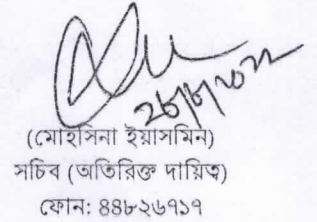 (মোহসিনা ইয়াসমিন)
সচিব (অতিরিক্ত দায়িত্ব)
ফোন: ৪৪৮২৬৭১৭